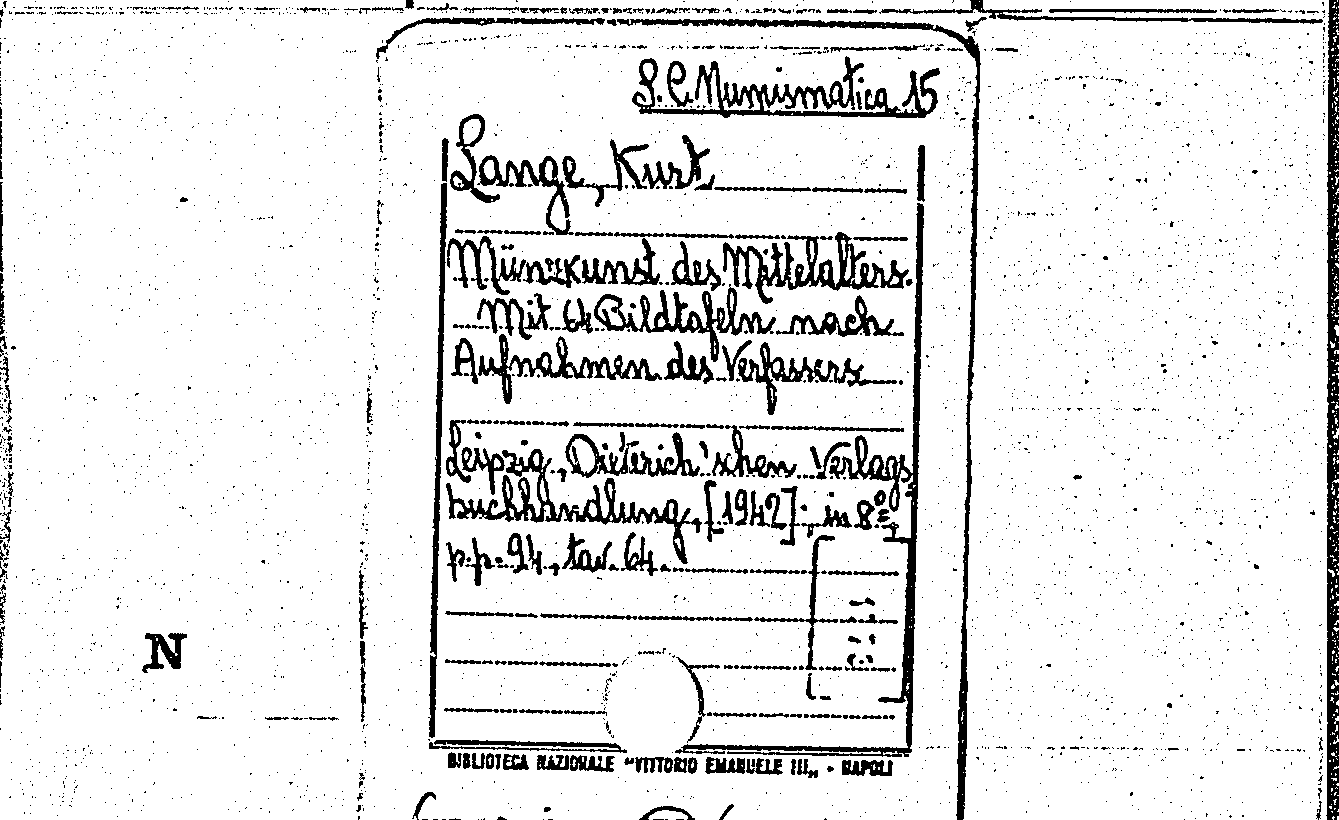 S.C. Numismatica 15
Lange, Kurt
Münzkunst des Mittelalters.
Mit 64 Bildtafeln nach
Aufnahmen des Verfassers
Leipzig, Dieterich'schen Verlags-
buchhandlung, [1942]; in 8º,
p.p. 94, tav. 64.
N
BIBLIOTECA NAZIONALE "VITTORIO EMANUELE III„ - NAPOLI